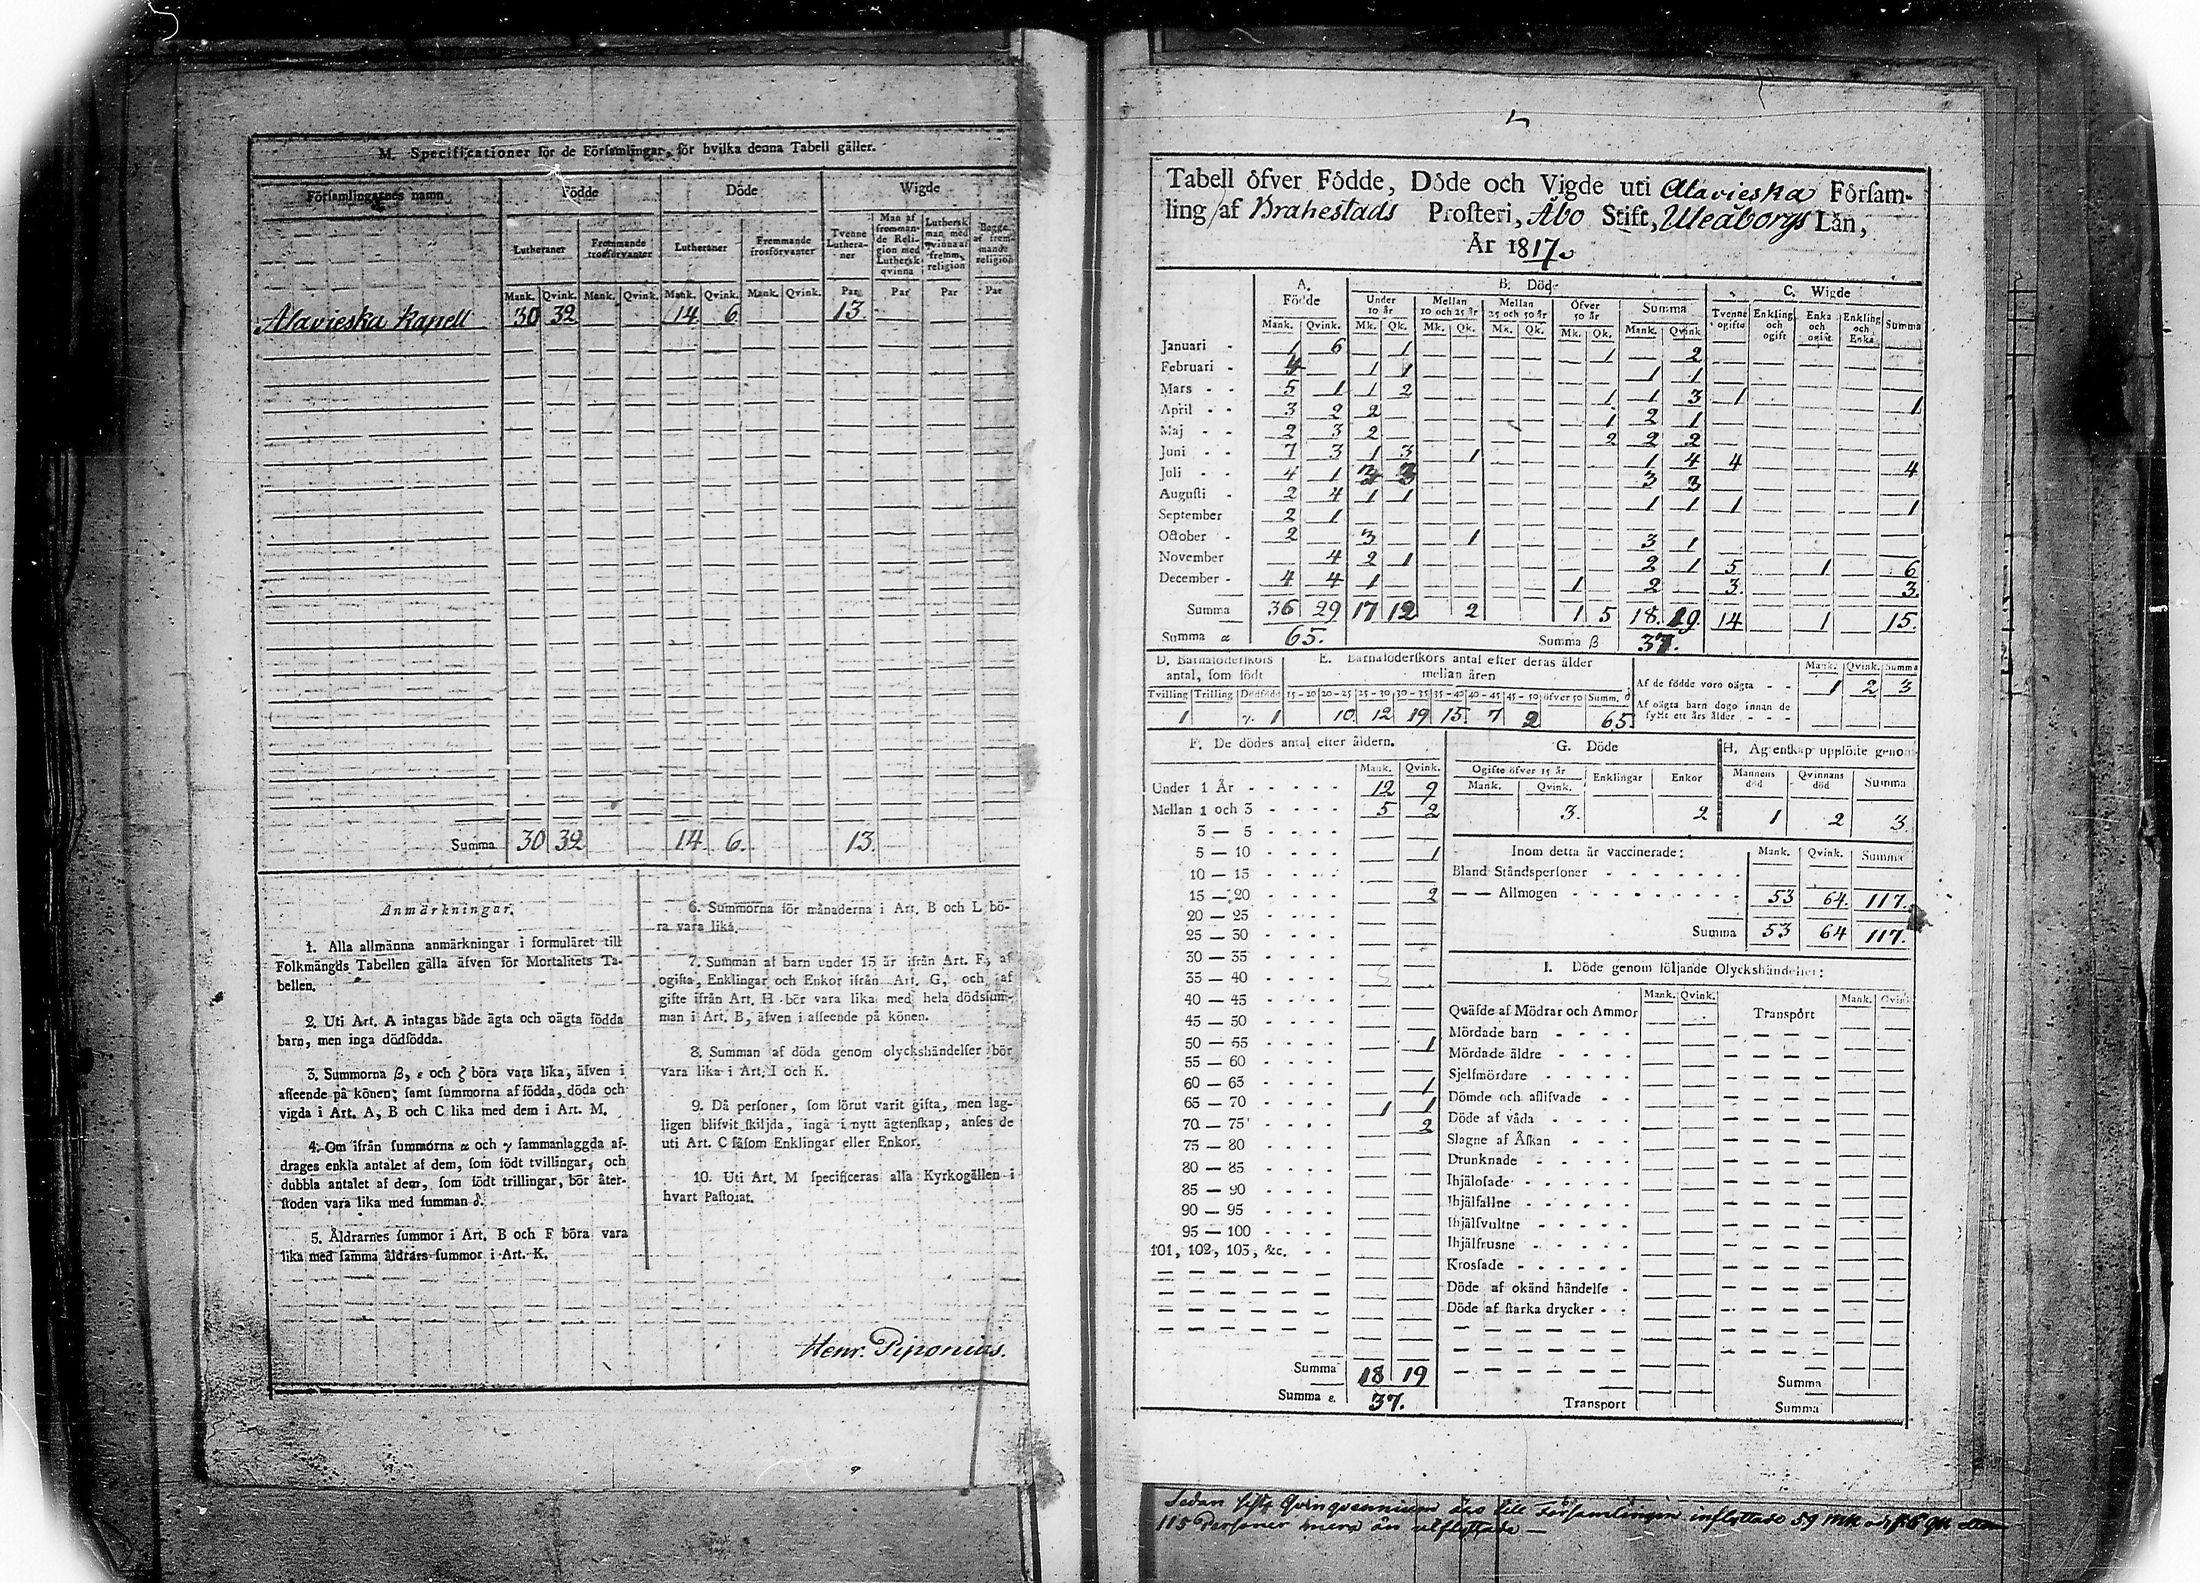 M. Specificationer för de Församlingar, för hvilka denna Tabell gäller.
Församlingarnes namn Födde Döde Wigde
Lutheraner Fremmande trosförvanter Lutheraner Fremmande trosförvanter Tvenne Lutheraner Man af fremmande Religion med Luthersk qvinna Luthersk man med qvinna af fremm. religion Begge af fremmande religion
Mank. Qvink. Mank. Qvink. Mank. Qvink. Mank. Qvink. Par Par Par Par
Alavieska Kapell 30 32 14 6 13
Summa 30 32 14 6. 13.
Anmärkningar.
1. Alla allmänna anmärkningar i formuläret till
Folkmängds Tabellen gälla äfven för Mortalitets Ta-
bellen.
2. Uti Art. A intagas både ägta och oägta födda
barn, men inga dödfödda.
3. Summorna β, ε och ζ böra vara lika, äfven i
afseende på könen; samt summorna af födda, döda och
vigda i Art. A, B och C lika med dem i Art. M.
4. Om ifrån summorna α och γ sammanlaggda af-
drages enkla antalet af dem, som födt tvillingar, och
dubbla antalet af dem, som födt trillingar, bör åter-
stoden vara lika med summan δ.
5. Åldrarnes summor i Art. B och F böra vara
lika med samma åldrars summor i Art. K.
6. Summorna för månaderna i Art. B och L bö-
ra vara lika.
7. Summan af barn under 15 år ifrån Art. F, af
ogifta, Enklingar och Enkor ifrån Art. G, och af
gifte ifrån Art. H bör vara lika med hela dödssum-
man i Art. B, äfven i afseende på könen.
8. Summan af döda genom olyckshändelser bör
vara lika i Art. I och K.
9. Då personer, som förut varit gifta, men lag-
ligen blifvit skiljda, ingå i nytt ägtenskap, anses de
uti Art. C såsom Enklingar eller Enkor.
10. Uti Art. M specificeras alla Kyrkogällen i
hvart Pastorat.
Henr. Piponius.
Tabell öfver Födde, Döde och Vigde uti Alavieska Försam-
ling af Brahestads Prosteri, Åbo Stift, Uleåborgs Län,
År 1817.
A. Födde B. Döde C. Wigde
Under 10 år Mellan 10 och 25 år Mellan 25 och 50 år Öfver 50 år Summa Tvenne ogifte Enkling och ogift Enka och ogift Enkling och Enka Summa
Mank. Qvink. Mk. Qk. Mk. Qk. Mk. Qk. Mk. Qk. Mank. Qvink.
Januari 1 6 1 1 2
Februari 4 1 1 1 1
Mars 5 1 1 2 1 1 3 1 1
April 3 2 2 1 2 1
Maj 2 3 2 2 2 2
Juni 7 3 1 3 1 1 4 4 4
Juli 4 1 3 3 3 3
Augusti 2 4 1 1 1 1 1 1
September 2 1
October 2 3 1 3 1
November 4 2 1 2 1 5 1 6
December 4 4 1 1 2 3 3
Summa 36 29 17 12 2 1 5 18 19 14 1 15.
Summa α 65. Summa β 37.
D. Barnaföderskors antal, som födt
Tvilling Trilling Dödfödd
1 γ. 1
E. Barnaföderskors antal efter deras ålder mellan åren
15-20 20-25 25-30 30-35 35-40 40-45 45-50 öfver 50 Summ. δ
10 12 19 15 7 2 65
Mank. Qvink. Summa
Af de födde voro oägta 1 2 3
Af oägta barn dogo innan de
fyllt ett års ålder
F. De dödes antal efter åldern.
Mank. Qvink.
Under 1 År 12 9
Mellan 1 och 3 5 2
3 — 5
5 — 10 1
10 — 15
15 — 20 2
20 — 25
25 — 30
30 — 35
35 — 40
40 — 45
45 — 50
50 — 55 1
55 — 60
60 — 65 1
65 — 70 1 1
70 — 75 2
75 — 80
80 — 85
85 — 90
90 — 95
95 — 100
101, 102, 103, &c.
Summa 18 19
Summa ε. 37.
G. Döde
Ogifte öfver 15 år Enklingar Enkor
Mank. Qvink.
3. 2
H. Ägtenskap upplöste genom
Mannens död Qvinnans död Summa
1 2 3.
Inom detta år vaccinerade: Mank. Qvink. Summa
Bland Ståndspersoner
— — Allmogen 53 64 117.
Summa 53 64 117.
I. Döde genom följande Olyckshändelser:
Mank. Qvink. Mank. Qvink.
Qväfde af Mödrar och Ammor Transport
Mördade barn
Mördade äldre
Sjelfmördare
Dömde och aflifvade
Döde af våda
Slagne af Åskan
Drunknade
Ihjälosade
Ihjälfallne
Ihjälsvultne
Ihjälfrusne
Krossade
Döde af okänd händelse
Döde af starka drycker
Summa
Transport Summa
Sedan sista Qvinqvennium äro till Församlingen inflyttade 59 Mk och
115 Personer mera än utflyttade —